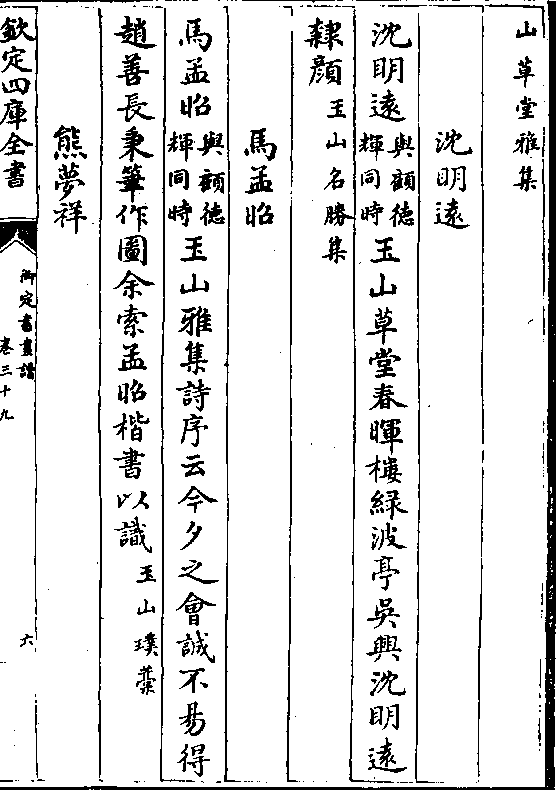 山草堂雅集
沈明遠
沈明遠與顧徳輝同時玉山草堂春暉樓緑波亭吳興沈明遠
隸顔玉山名勝集
馬孟昭
馬孟昭與顧徳輝同時玉山雅集詩序云今夕之會誠不易得
趙善長秉筆作圖余索孟昭楷書以識玉山璞藳
熊夢祥
欽定四庫全書
御定書畫譜
卷三十九
六